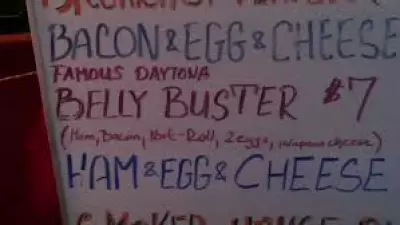 BACON & EGG & CHEESE
FAMOUS DAYTONA
BELLY BUSTER $7
(Ham, Bacon, Pork-Roll, 2 eggs, jalapeno cheese)
HAM & EGG & CHEESE
SMOKED